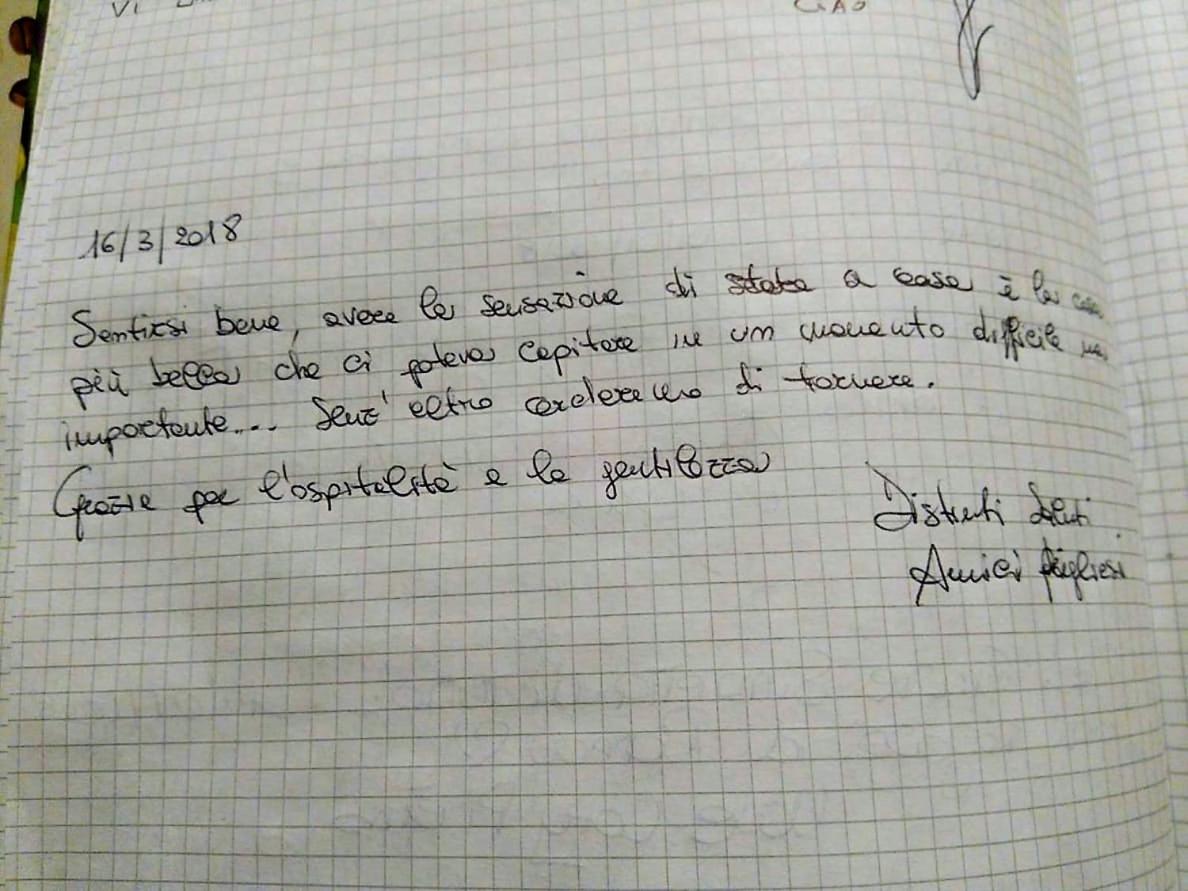 CIAO
16/3/2018
Sentirsi bene, avere la sensazione di stare a casa è la cosa
più bella che ci poteva capitare in un momento difficile ma
importante... Senz'altro cercheremo di tornare.
Grazie per l'ospitalità e la gentilezza
Distinti saluti
Amici pugliesi